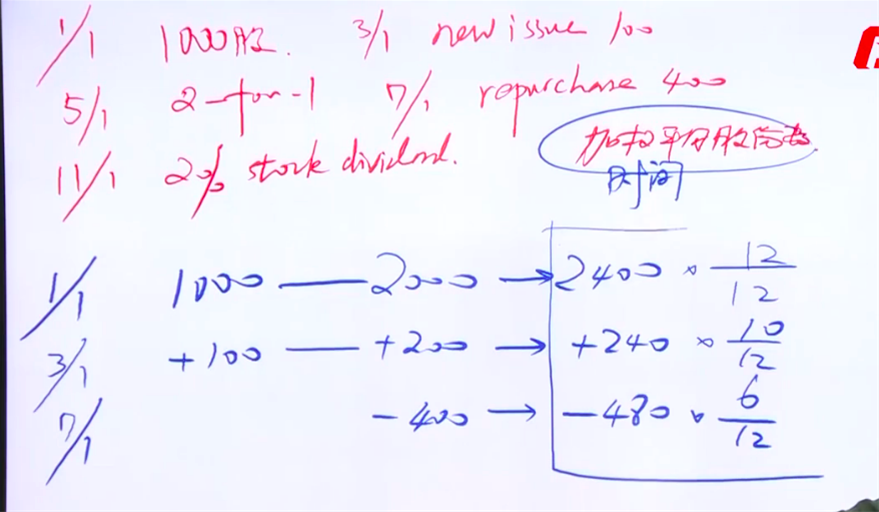 1/1 1000股. 3/1 new issue 100
5/1 2-for-1 7/1 repurchase 400
11/1 20% stock dividend.
加权平均股份数
时间
1/1 1000 — 2000 → 2400 × 12/12
3/1 +100 — +200 → +240 × 10/12
7/1 -400 → -480 × 6/12